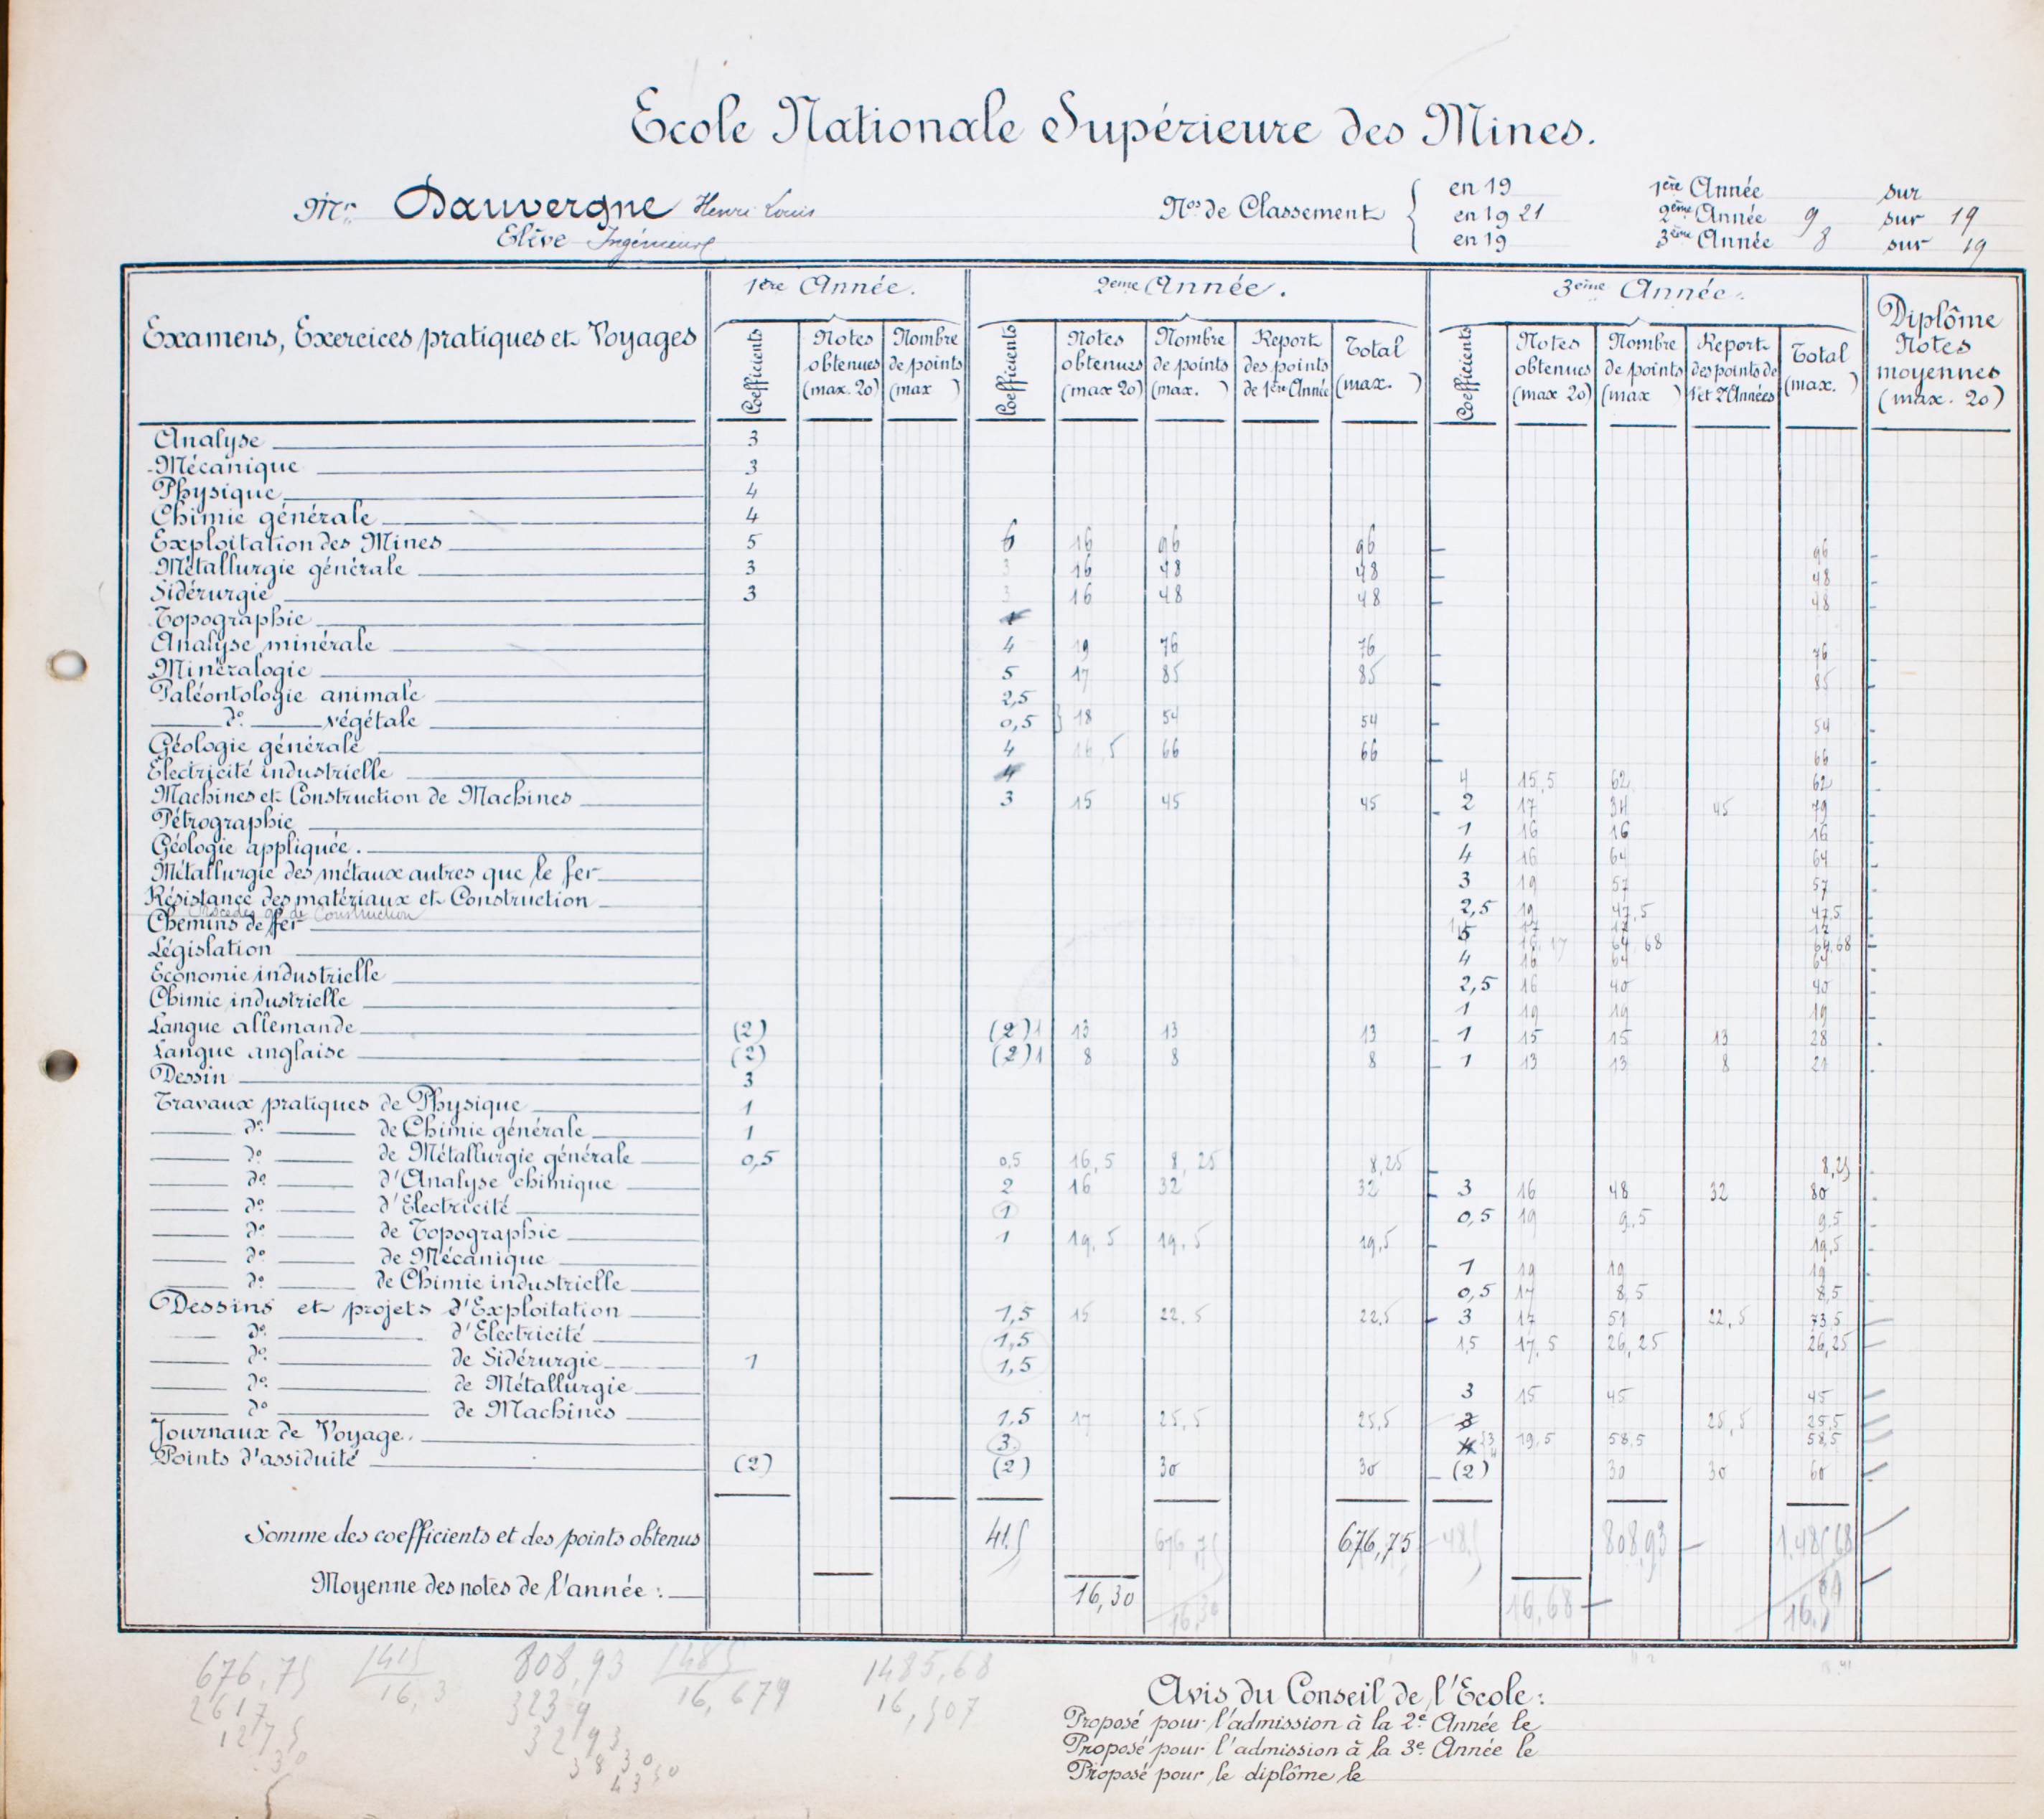 Ecole Nationale Supérieure des Mines.
Mr. Dauvergne Henri Louis
Elève Ingénieur
Nos de Classement
en 19 1ère Année sur
en 19 21 2ème Année 9 sur 19
en 19 3ème Année 8 sur 19
Examens, Exercices pratiques et Voyages
1ère Année. 2eme Année. 3ème Année.
Coefficients Notes obtenues (max. 20) Nombre de points (max )
Coefficients Notes obtenues (max 20) Nombre de points (max. ) Report des points de 1ère Année Total (max. )
Coefficients Notes obtenues (max 20) Nombre de points (max ) Report des points de 1 et 2 Années Total (max. )
Diplôme Notes moyennes (max. 20)
Analyse 3
Mécanique 3
Physique 4
Chimie générale 4
Exploitation des Mines 5 6 16 96 96 96
Métallurgie générale 3 3 16 48 48 48
Sidérurgie 3 3 16 48 48 48
Topographie
Analyse minérale 4 19 76 76 76
Minéralogie 5 17 85 85 85
Paléontologie animale 2,5
do végétale 0,5 } 18 54 54 54
Géologie générale 4 16,5 66 66 66
Electricité industrielle 4 4 15,5 62 62
Machines et Construction de Machines 3 15 45 45 2 17 34 45 79
Pétrographie 1 16 16 16
Géologie appliquée. 4 16 64 64
Métallurgie des métaux autres que le fer 3 19 57 57
Résistance des matériaux et Construction 2,5 19 47,5 47,5
Procédés de Construction 17 17 17
Chemins de fer 17 64,68 64,68
Législation 4 16 64 64
Economie industrielle 2,5 16 40 40
Chimie industrielle 1 19 19 19
Langue allemande (2) (2) 1 13 13 13 1 15 15 13 28
Langue anglaise (2) (2) 1 8 8 8 1 13 13 8 21
Dessin 3
Travaux pratiques de Physique 1
do de Chimie générale 1
do de Métallurgie générale 0,5 0,5 16,5 8,25 8,25 8,25
do d'Analyse chimique 2 16 32 32 3 16 48 32 80
do d'Electricité 1 0,5 19 9,5 9,5
do de Topographie 1 19,5 19,5 19,5 19,5
do de Mécanique 1 19 19 19
do de Chimie industrielle 0,5 17 8,5 8,5
Dessins et projets d'Exploitation 1,5 15 22,5 22,5 3 17 51 22,5 73,5
do d'Electricité 1,5 1,5 17,5 26,25 26,25
do de Sidérurgie 1 1,5
do de Métallurgie 3 15 45 45
do de Machines 1,5 17 25,5 25,5 3 25,5 25,5
Journaux de Voyage. 3 3 19,5 58,5 58,5
Points d'assiduité (2) (2) 30 30 (2) 30 30 60
Somme des coefficients et des points obtenus 41,5 676,75 676,75 48,5 808,93 1.485,68
Moyenne des notes de l'année : 16,30 16,30 16,68
676,75 41,5 808,93 48,5 1485,68
2617 16,3 3239 16,679 16,507
1275 3293
30 3830
Avis du Conseil de l'Ecole :
Proposé pour l'admission à la 2e Année le
Proposé pour l'admission à la 3e Année le
Proposé pour le diplôme le